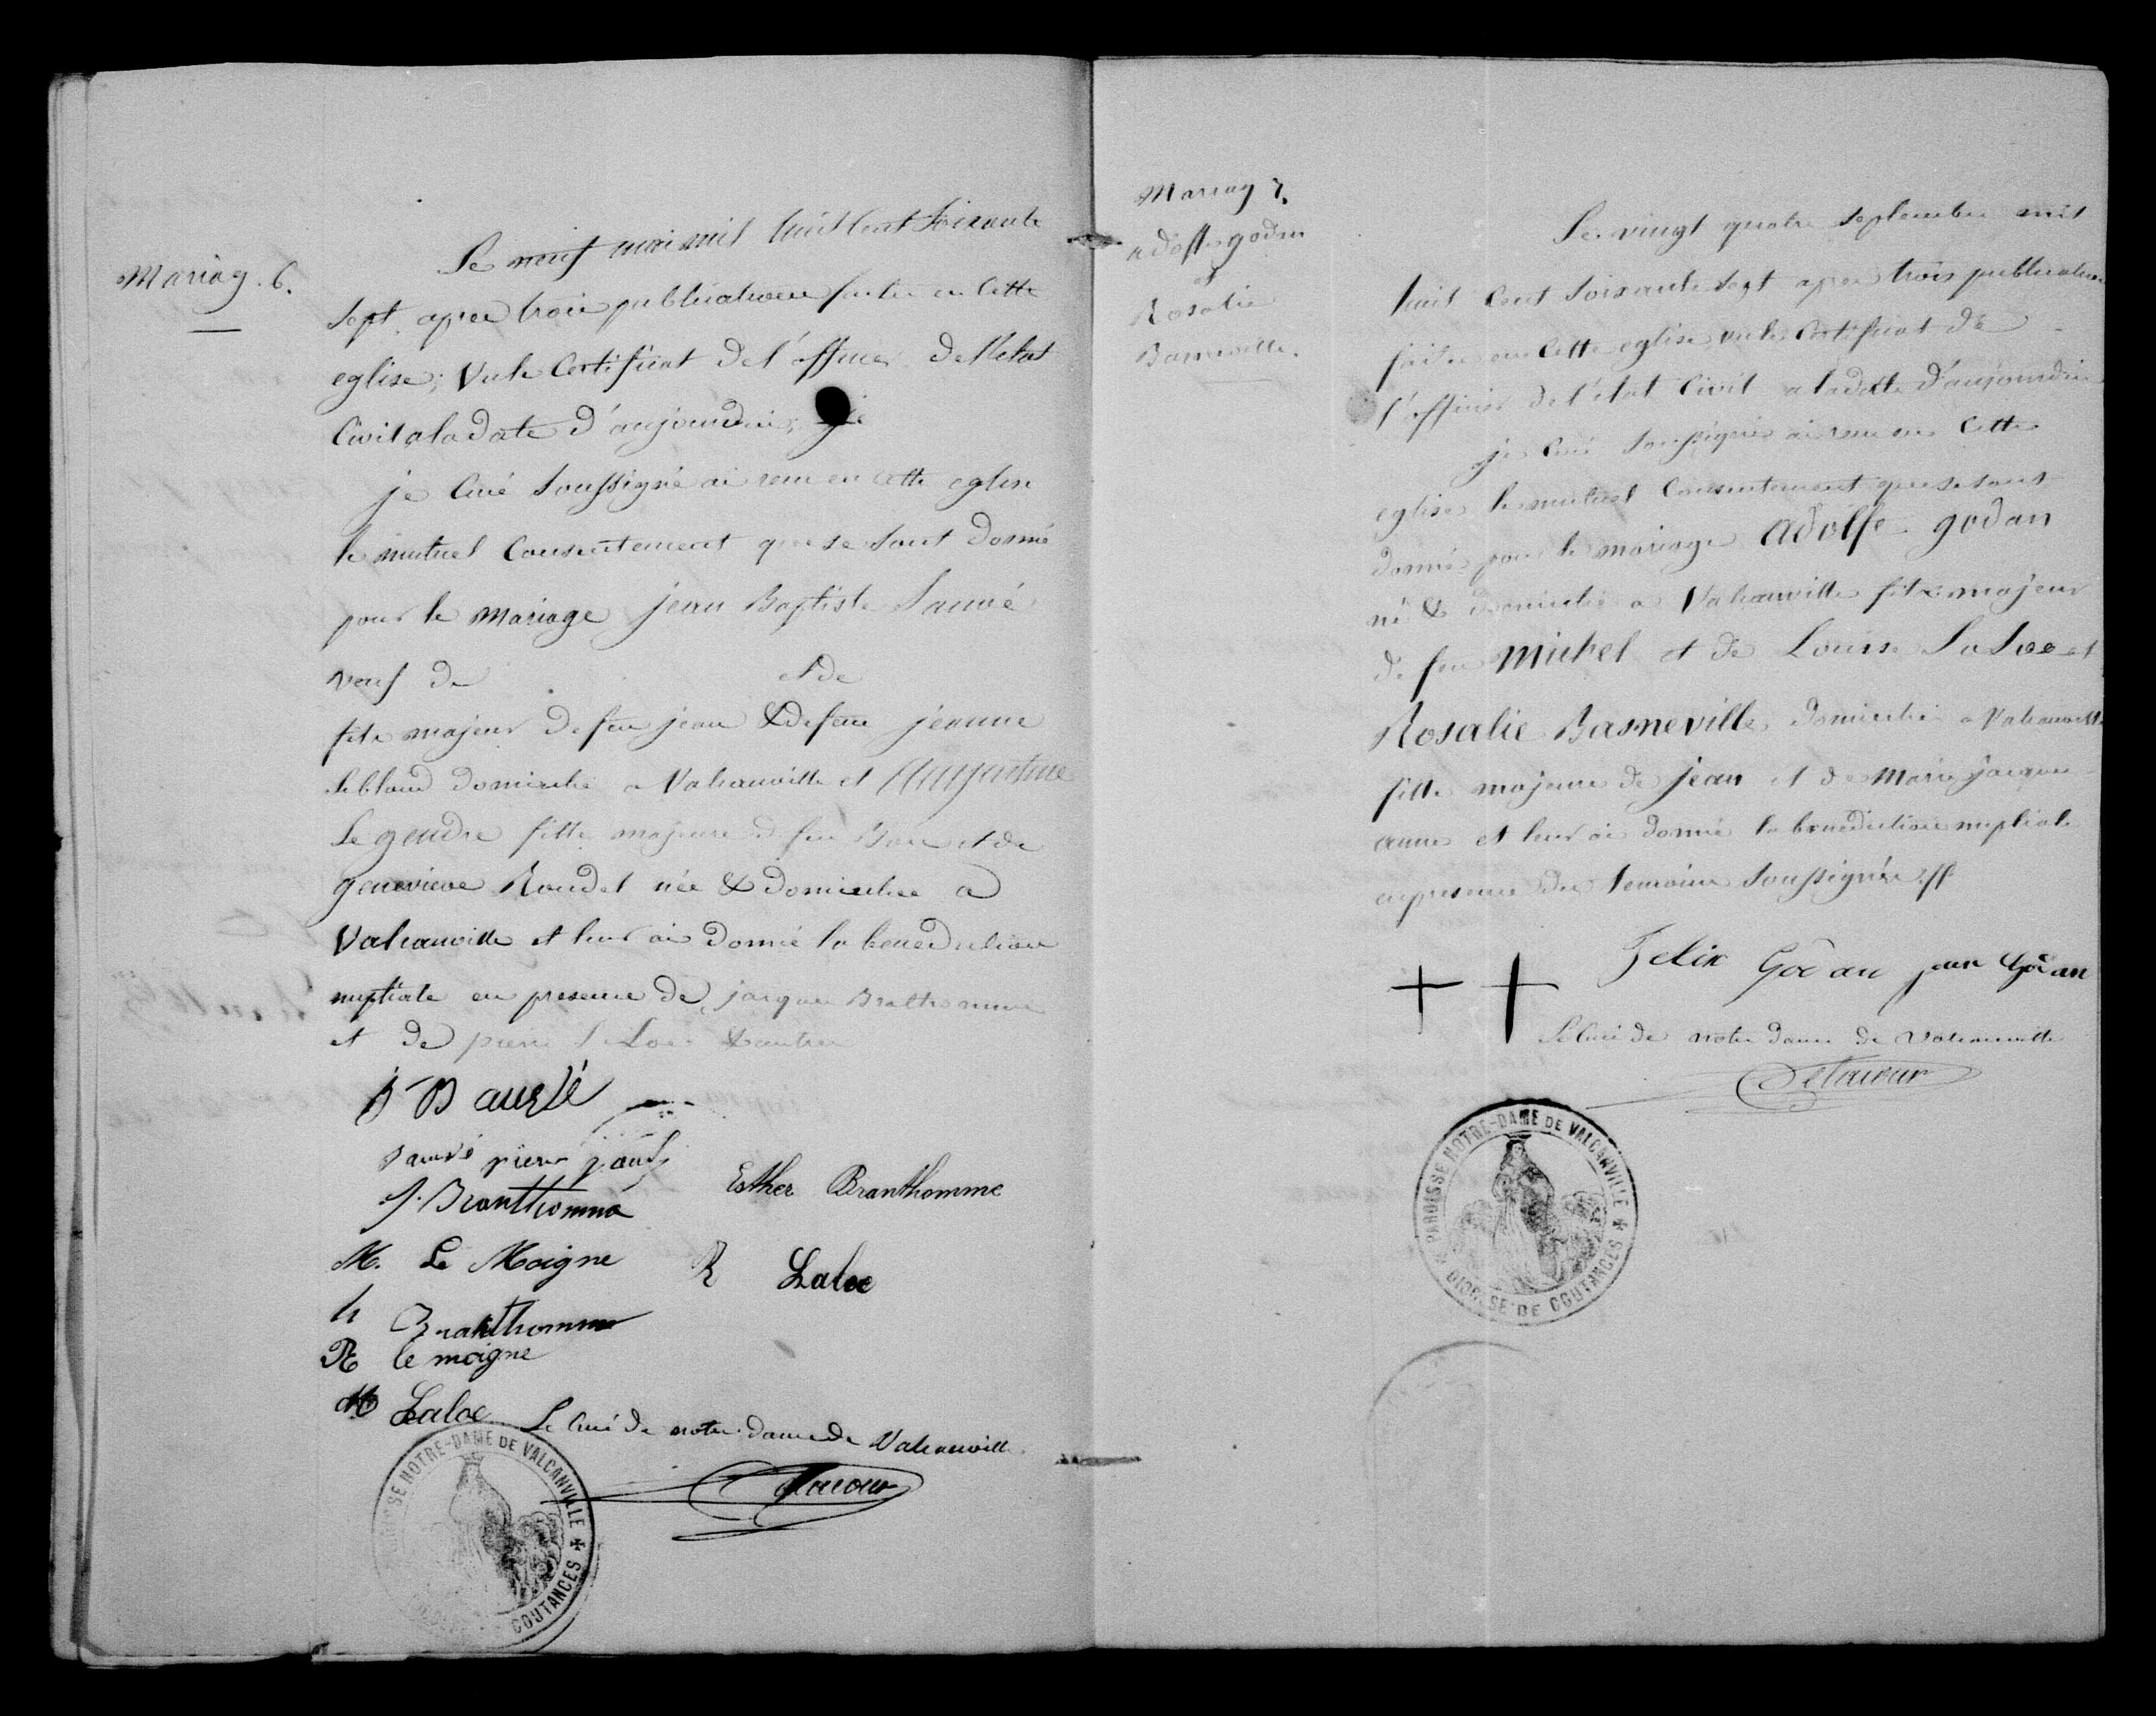 Mariag. 6.
Le neuf mai mil huit Cent Soixante
Sept. apres trois publications faites en Cette
eglise; Vu le Certificat de l'officier de l'etat
Civil a la date d'aujourdhui;
je Curé Soussigné ai reçu en cette eglise
le mutuel Consentement que se sont donné
pour le mariage jean Baptiste Sauvé
veuf de et de
fils majeur de feu jean & de feue jeanne
leblond domicilié a Valcanville et Augustine
Le gendre fille majeure de feu Bon et de
genevieve Roudet née & domiciliee a
Valcanville et leur ai donné la benediction
nuptiale en presence de jacques Branthomme
et de pierre LeLoe & autres
Sauvé pierre
J. Branthomme
Esther Branthomme
M. Le Moigne
R Laloe
h Branthomme
R le moigne
M Laloe
Le Curé de notre dame de Valcanville
PAROISSE NOTRE-DAME DE VALCANVILLE
COUTANCES
Mariag 7.
adolfe godan
et
Rosalie
Basneville.
Le vingt quatre Septembre mil
huit Cent Soixante Sept apres trois publications
faites en Cette eglise vu le Certificat de
l'officier de l'état Civil a la date d'aujourdhui
je Curé Soussigné ai reçu en Cette
eglise le mutuel Consentement que se sont
donné pour le mariage Adolfe godan
né & domicilié a Valcanville fils majeur
de feu Michel et de Louise et
Rosalie Basneville domiciliée a Valcanville
fille majeure de jean et de Marie jacques
anne et leur ai donné la benediction nuptiale
en presence des temoins Soussignés
Felix Godan jean Godan
Le Curé de notre dame de Valcanville
PAROISSE NOTRE-DAME DE VALCANVILLE
DIOCESE DE COUTANCES